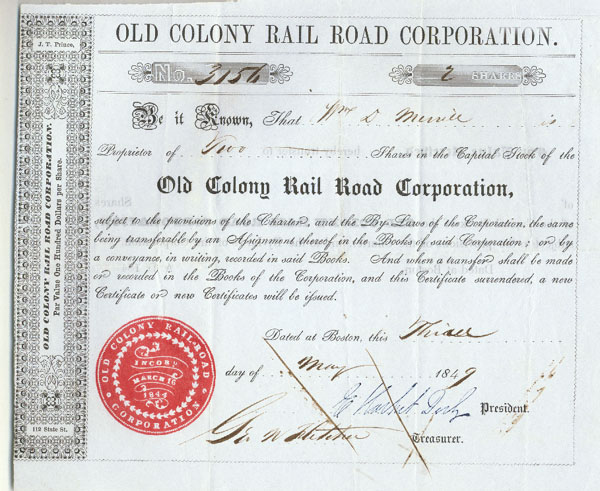 J. T. Prince,
OLD COLONY RAIL ROAD CORPORATION.
Par Value One Hundred Dollars per Share.
112 State St.
OLD COLONY RAIL ROAD CORPORATION.
No. 3156 2 SHARES
Be it Known, That Wm D. Merrill is
Proprietor of Two Shares in the Capital Stock of the
Old Colony Rail Road Corporation,
subject to the provisions of the Charter, and the By-Laws of the Corporation, the same
being transferable by an Assignment thereof in the Books of said Corporation; or by
a conveyance, in writing, recorded in said Books. And when a transfer shall be made
or recorded in the Books of the Corporation, and this Certificate surrendered, a new
Certificate or new Certificates will be issued.
Dated at Boston, this Third
day of May 1849
President.
Treasurer.
OLD COLONY RAIL-ROAD
INCORP.
MARCH 16
1844
CORPORATION